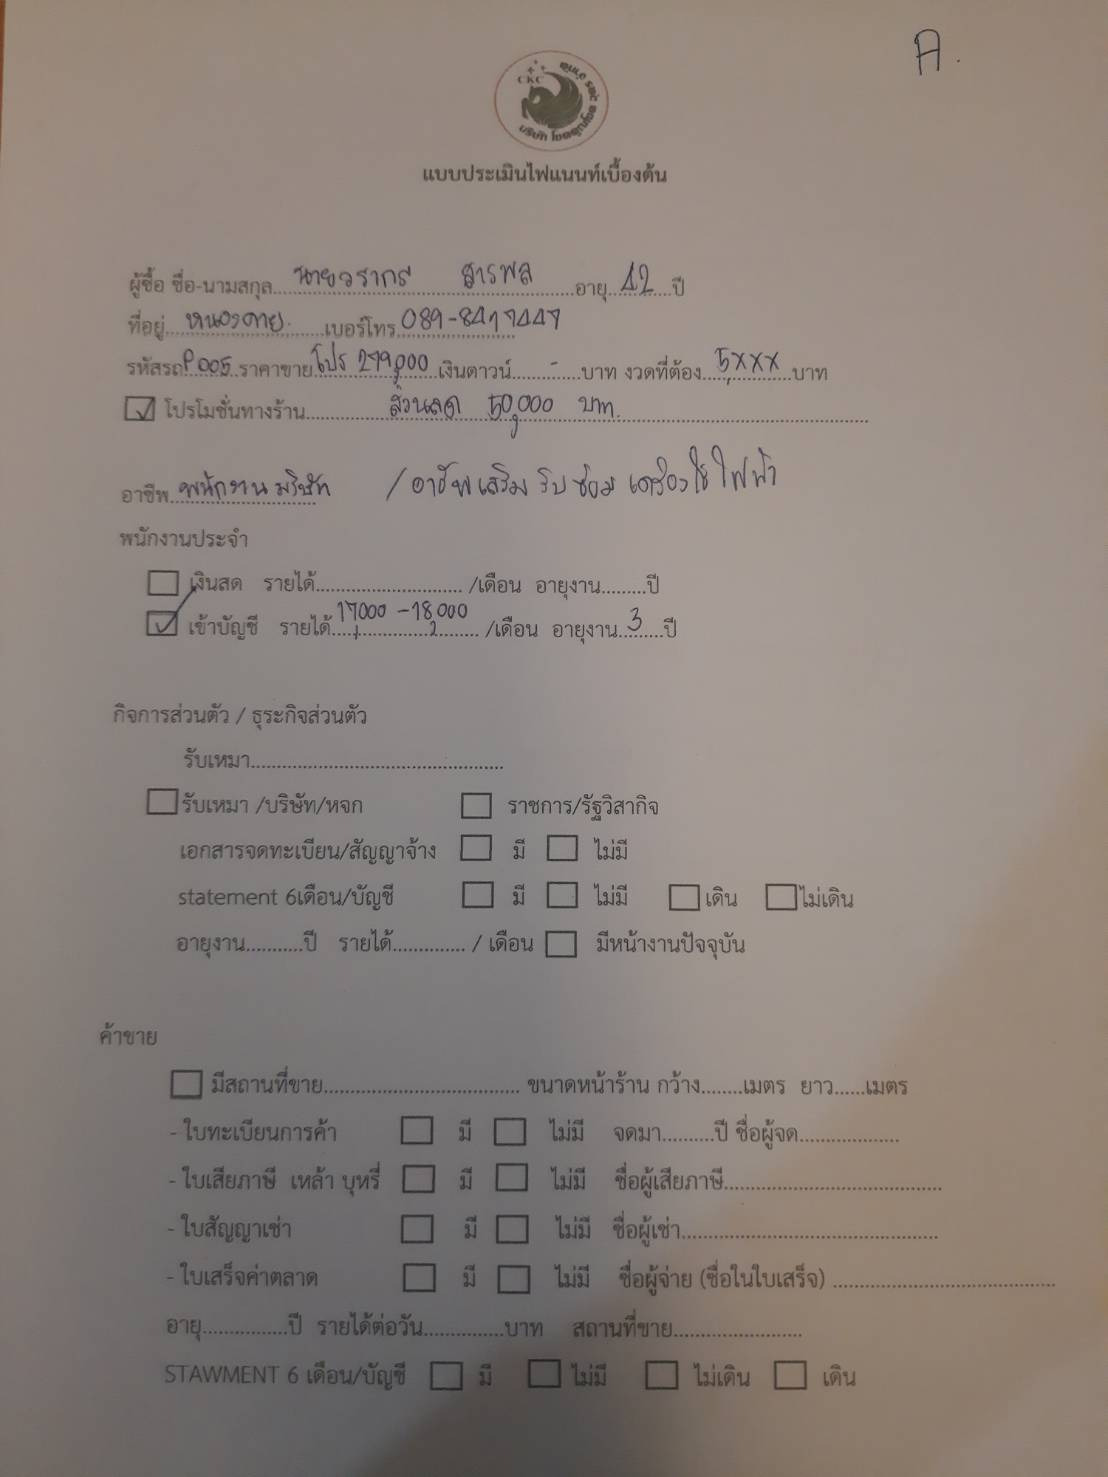 A.
CKC
แบบประเมินไฟแนนท์เบื้องต้น
ผู้ซื้อ ชื่อ-นามสกุล...นายวรากร สารพล...อายุ...42...ปี
ที่อยู่...หนองคาย...เบอร์โทร...089-8417447
รหัสรถ...P005...ราคาขาย...โปร 279,000...เงินดาวน์...-...บาท งวดที่ต้อง...5,xxx...บาท
☑ โปรโมชั่นทางร้าน...ส่วนลด 50,000 บาท...
อาชีพ...พนักงานบริษัท / อาชีพเสริม รับซ่อม เครื่องใช้ไฟฟ้า
พนักงานประจำ
☐ เงินสด รายได้.............................../เดือน อายุงาน.........ปี
☑ เข้าบัญชี รายได้...17,000 - 18,000.../เดือน อายุงาน...3...ปี
กิจการส่วนตัว / ธุระกิจส่วนตัว
รับเหมา................................................
☐ รับเหมา /บริษัท/หจก ☐ ราชการ/รัฐวิสากิจ
เอกสารจดทะเบียน/สัญญาจ้าง ☐ มี ☐ ไม่มี
statement 6เดือน/บัญชี ☐ มี ☐ ไม่มี ☐ เดิน ☐ ไม่เดิน
อายุงาน...........ปี รายได้.............. / เดือน ☐ มีหน้างานปัจจุบัน
ค้าขาย
☐ มีสถานที่ขาย..................................... ขนาดหน้าร้าน กว้าง........เมตร ยาว......เมตร
- ใบทะเบียนการค้า ☐ มี ☐ ไม่มี จดมา..........ปี ชื่อผู้จด...................
- ใบเสียภาษี เหล้า บุหรี่ ☐ มี ☐ ไม่มี ชื่อผู้เสียภาษี..........................................
- ใบสัญญาเช่า ☐ มี ☐ ไม่มี ชื่อผู้เช่า.................................................
- ใบเสร็จค่าตลาด ☐ มี ☐ ไม่มี ชื่อผู้จ่าย (ชื่อในใบเสร็จ) ..........................................
อายุ................ปี รายได้ต่อวัน...............บาท สถานที่ขาย........................
STAWMENT 6 เดือน/บัญชี ☐ มี ☐ ไม่มี ☐ ไม่เดิน ☐ เดิน